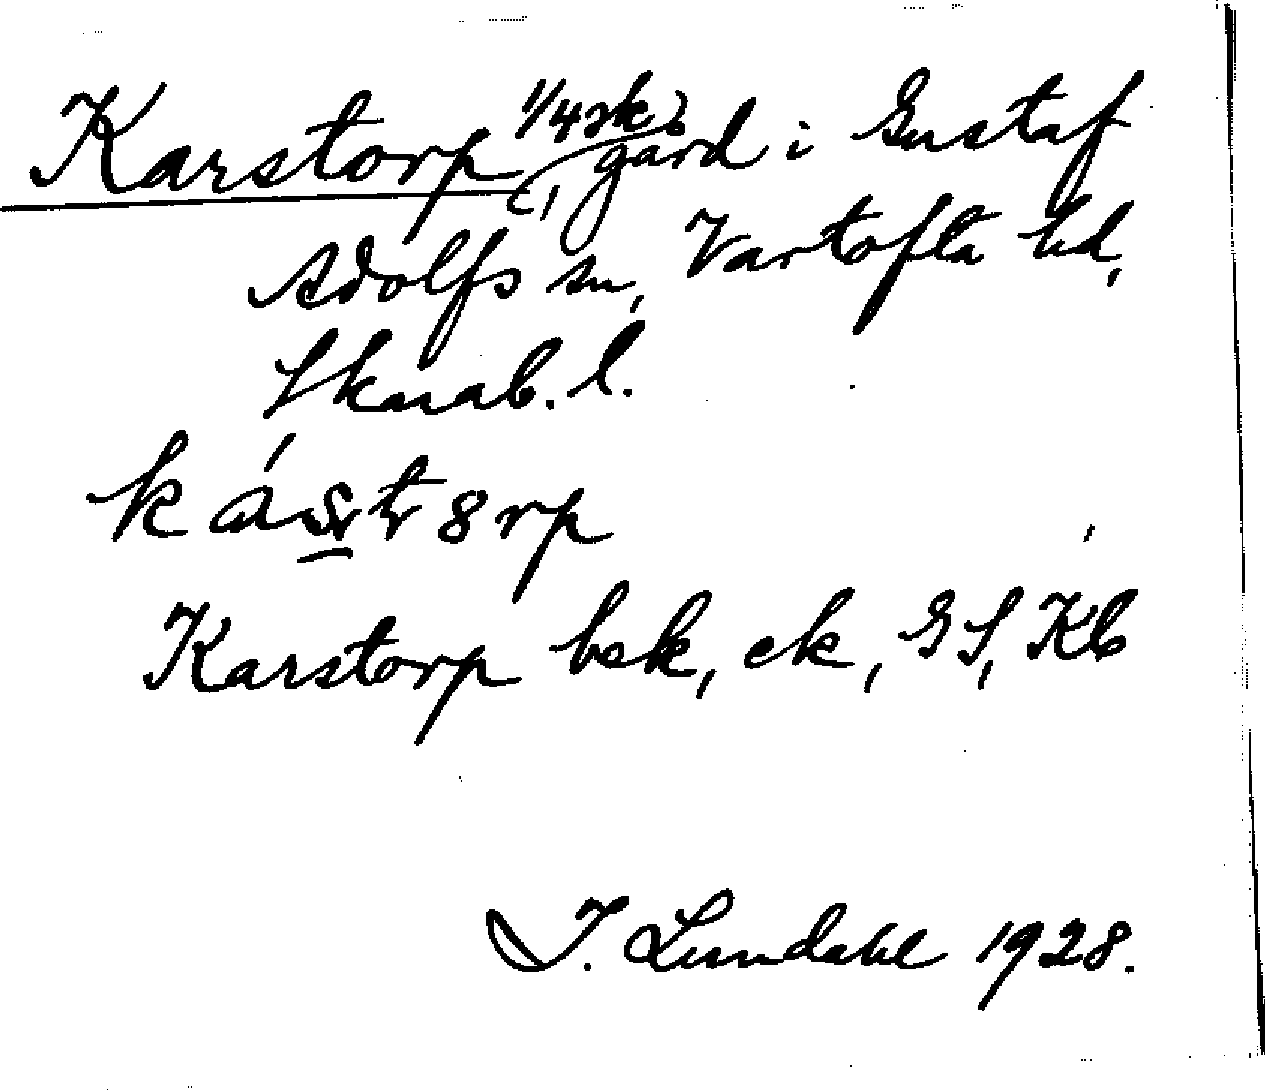 Karstorp, 1/4 sk gård i Gustaf
Adolfs sn, Vartofta hd,
Skarab. l.
kástrp
Karstorp bek, ek, GS, Kb
I. Lundahl 1928.